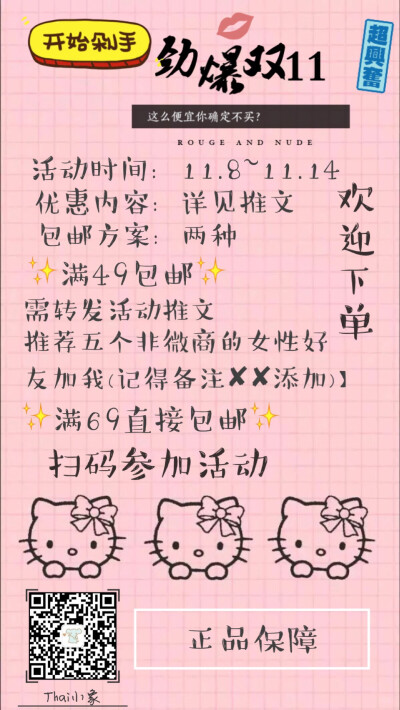 开始剁手
劲爆双11
超興奮
这么便宜你确定不买?
ROUGE AND NUDE
活动时间: 11.8~11.14
优惠内容: 详见推文
包邮方案: 两种
欢迎下单
✨满49包邮✨
需转发活动推文
推荐五个非微商的女性好
友加我(记得备注✘✘添加)】
✨满69直接包邮✨
扫码参加活动
正品保障
Thai小象